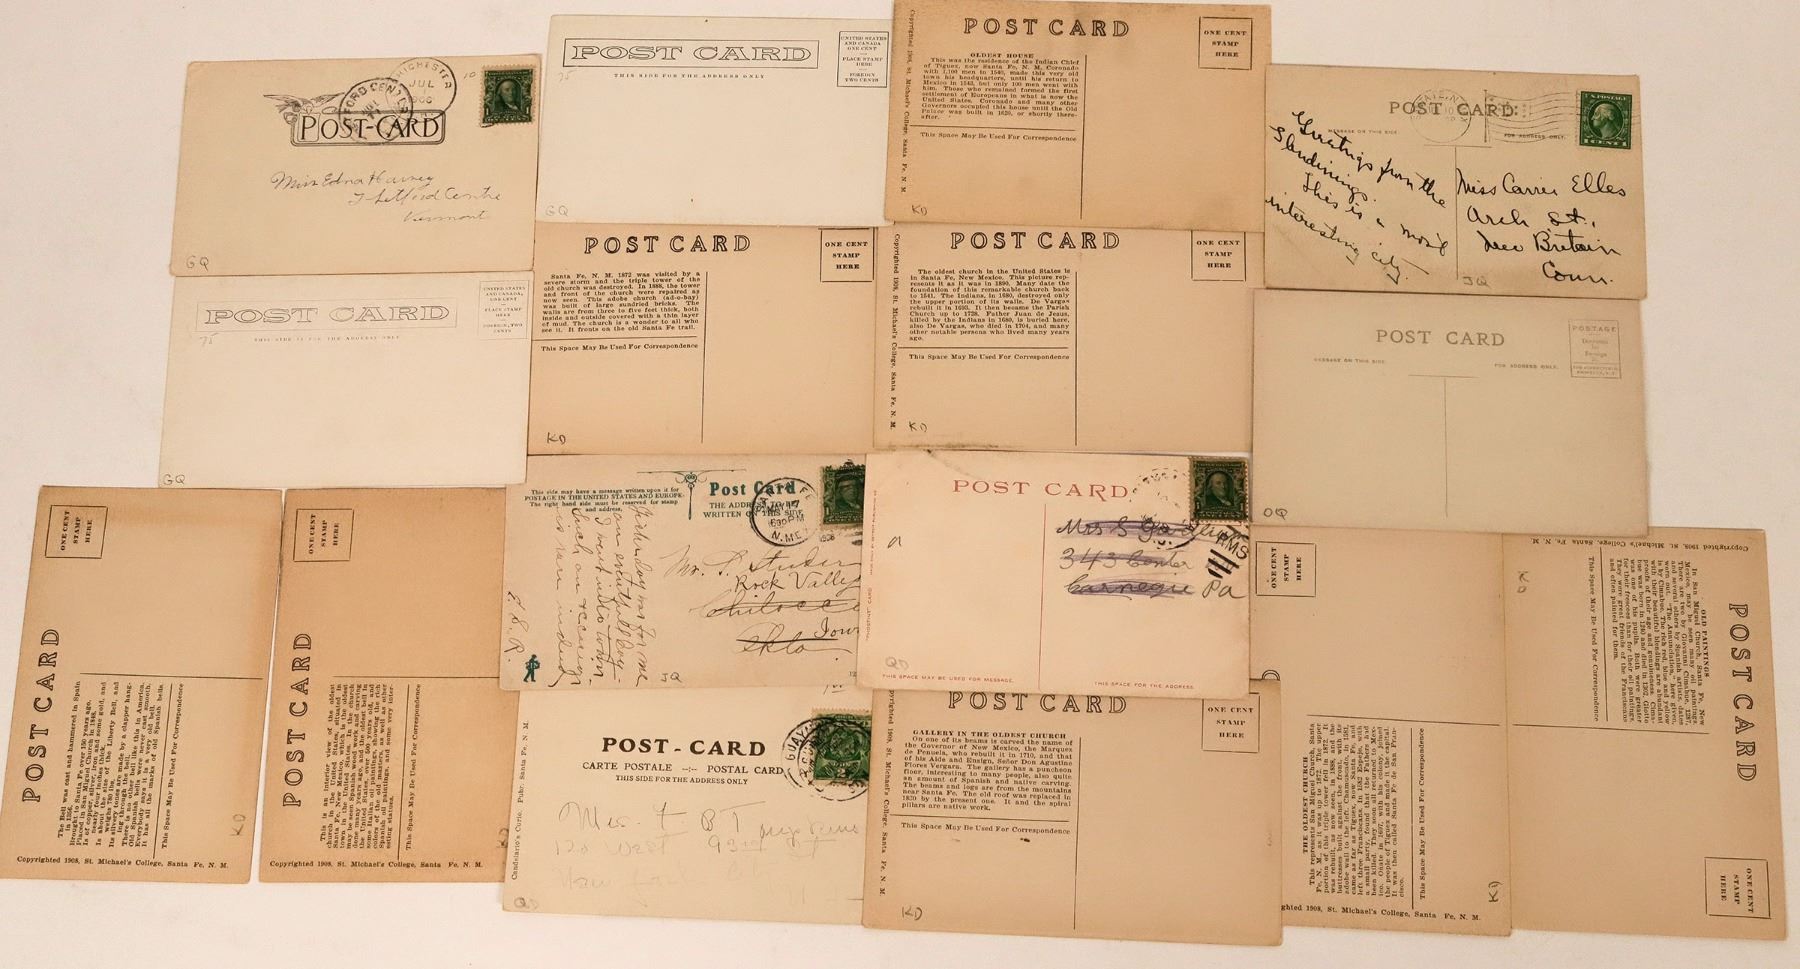 POST-CARD
JUL
1906
Miss Edna Harvey
Thetford Centre
Vermont
GQ
POST CARD
THIS SIDE FOR THE ADDRESS ONLY
UNITED STATES
AND CANADA
ONE CENT
PLACE STAMP
HERE
FOREIGN
TWO CENTS
75
GQ
POST CARD
ONE CENT
STAMP
HERE
OLDEST HOUSE
This was the residence of the Indian Chief
of Tiguex, now Santa Fe, N. M. Coronado
with 1,100 men in 1540, made this very old
town his headquarters, until his return to
Mexico in 1543, but only 100 men went with
him. Those who remained formed the first
settlement of Europeans in what is now the
United States. Coronado and many other
Governors occupied this house until the Old
Palace was built in 1620, or shortly there-
after.
This Space May Be Used For Correspondence
Copyrighted 1908, St. Michael's College, Santa Fe, N. M.
KD
POST CARD
MESSAGE ON THIS SIDE.
FOR ADDRESS ONLY.
U.S. POSTAGE
1 CENT 1
Greetings from the
Glendinings.
This is a most
interesting city.
Miss Carrie Elles
Arch St.
New Britain
Conn.
JQ
POST CARD
THIS SIDE IS FOR THE ADDRESS ONLY
UNITED STATES
AND CANADA,
ONE CENT
PLACE STAMP
HERE
FOREIGN, TWO
CENTS
75
GQ
POST CARD
ONE CENT
STAMP
HERE
Santa Fe, N. M. 1872 was visited by a
severe storm and the triple tower of the
old church was destroyed. In 1888, the tower
and front of the church were repaired as
now seen. This adobe church (ad-o-bay)
was built of large sundried bricks. The
walls are from three to five feet thick, both
inside and outside covered with a thin layer
of mud. The church is a wonder to all who
see it. It fronts on the old Santa Fe trail.
This Space May Be Used For Correspondence
KD
POST CARD
ONE CENT
STAMP
HERE
The oldest church in the United States is
in Santa Fe, New Mexico. This picture rep-
resents it as it was in 1890. Many date the
foundation of this remarkable church back
to 1541. The Indians, in 1680, destroyed only
the upper portion of its walls. De Vargas
rebuilt it in 1693. It then became the Parish
Church up to 1728. Father Juan de Jesus,
killed by the Indians in 1680, is buried here,
also De Vargas, who died in 1704, and many
other notable persons who lived many years
ago.
This Space May Be Used For Correspondence
Copyrighted 1908, St. Michael's College, Santa Fe, N. M.
KD
POST CARD
MESSAGE ON THIS SIDE.
FOR ADDRESS ONLY.
POSTAGE
Domestic
1c
Foreign
2c
OQ
ONE CENT
STAMP
HERE
POST CARD
The Bell was cast and hammered in Spain
in 1356.
Brought to Santa Fe over 150 years ago.
Placed in San Miguel Church in 1848.
Is of copper, silver, iron and some gold, and
nearly four inches thick.
Is about the size of the Liberty Bell, and
weighs 780 lbs.
Its silvery tones are made by a clapper hang-
ing through the bell.
There is no other bell like this in America.
Old Spanish bells were never cast smooth.
Everybody says it is a very old bell.
It has all the marks of old Spanish bells.
This Space May Be Used For Correspondence
Copyrighted 1908, St. Michael's College, Santa Fe, N. M.
KD
ONE CENT
STAMP
HERE
POST CARD
This is an interior view of the oldest
church in the United States, situated in
Santa Fe, New Mexico, which is the oldest
town in the United States. In the church
may be seen Spanish wood work and carving
done many years ago, and the oldest bell in
the United States, over 500 years old, and
some Italian oil paintings, showing the rich
colors of the old masters, as well as other
Spanish oil paintings, and some very inter-
esting statues.
This Space May Be Used For Correspondence
Copyrighted 1908, St. Michael's College, Santa Fe, N. M.
This side may have a message written upon it for
POSTAGE IN THE UNITED STATES AND EUROPE-
The right hand side must be reserved for stamp
and address.
Post Card
THE ADDRESS TO BE
WRITTEN ON THIS SIDE
MAY 17
630 PM
1908
N.MEX
Yesterday was for me
an eventful day—
I went into town
Such an occasion
is rare indeed
E. L. R.
Mr. P. Studer
Rock Valley
Chilocco
Iowa
Okla.
JQ
POST CARD
RMS
Mrs S
343 Center
Carnegie Pa
QD
THIS SPACE MAY BE USED FOR MESSAGE.
THIS SPACE FOR THE ADDRESS
POST-CARD
CARTE POSTALE -:- POSTAL CARD
THIS SIDE FOR THE ADDRESS ONLY
Candelario's Curio. Pubr. Santa Fe, N. M.
West 93rd
QD
POST CARD
ONE CENT
STAMP
HERE
GALLERY IN THE OLDEST CHURCH
On one of its beams is carved the name of
the Governor of New Mexico, the Marques
de Penuela, who rebuilt it in 1710, and that
of his Aide and Ensign, Señor Don Agustino
Flores Vergara. The gallery has a puncheon
floor, interesting to many people, also quite
an amount of Spanish and native carving.
The beams and logs are from the mountains
near Santa Fe. The old roof was replaced in
1830 by the present one. It and the spiral
pillars are native work.
This Space May Be Used For Correspondence
Copyrighted 1908, St. Michael's College, Santa Fe, N. M.
KD
ONE CENT
STAMP
HERE
THE OLDEST CHURCH
This represents San Miguel Church, Santa
Fe, N. M., as it was up to 1872. The upper
portion of this triple tower fell in 1872. It
was rebuilt, as now seen, in 1888, and the
buttresses built against the front, with its
adobe wall to the left. Chamuscado, in 1581,
came as far as Tiguex, now Santa Fe, and
left three Franciscans. In 1582 Espejo, with
a small party, found that the Fathers had
been killed. They soon all returned to Mex-
ico. Onate in 1597, with his colony, joined
the people of Tiguex and made it the capital.
It was then called Santa Fe de San Fran-
cisco.
This Space May Be Used For Correspondence
ghted 1908, St. Michael's College, Santa Fe, N. M.
KD
Copyrighted 1908, St. Michael's College, Santa Fe, N. M.
POST CARD
OLD PAINTINGS
In San Miguel Church, Santa Fe, New
Mexico, may be seen many oil paintings.
This Space May Be Used For Correspondence
ONE CENT
STAMP
HERE
KD